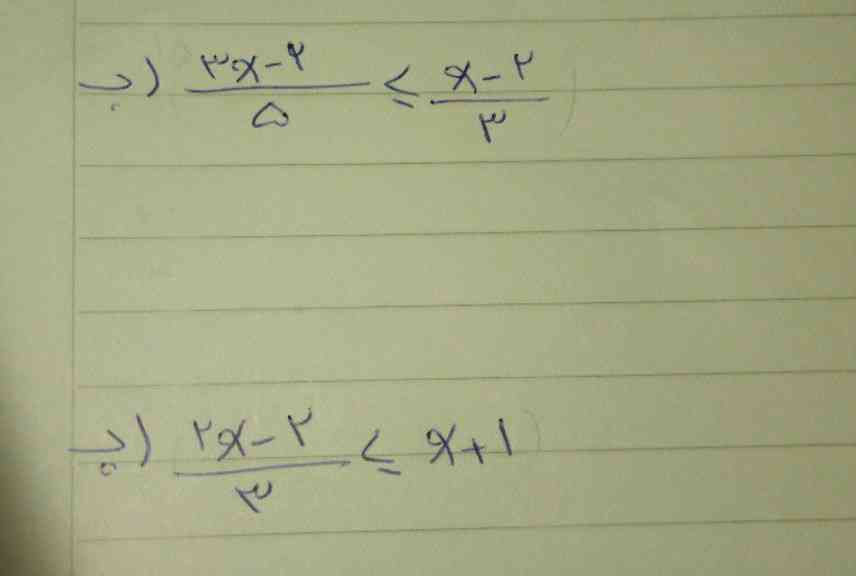 ب) ۳x-۲/۵ ≤ x-۲/۳
ب) ۲x-۲/۳ ≤ x+۱